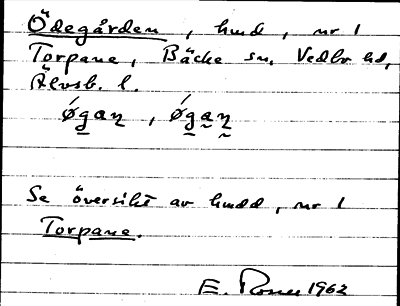 Ödegården, hmd, nr 1
Torpane, Bäcke sn, Vedbo hd,
Älvsb. l.
ǿgaꞑ, ǿgaꞑ
Se översikt av hmdd, nr 1
Torpane.
E. 1962